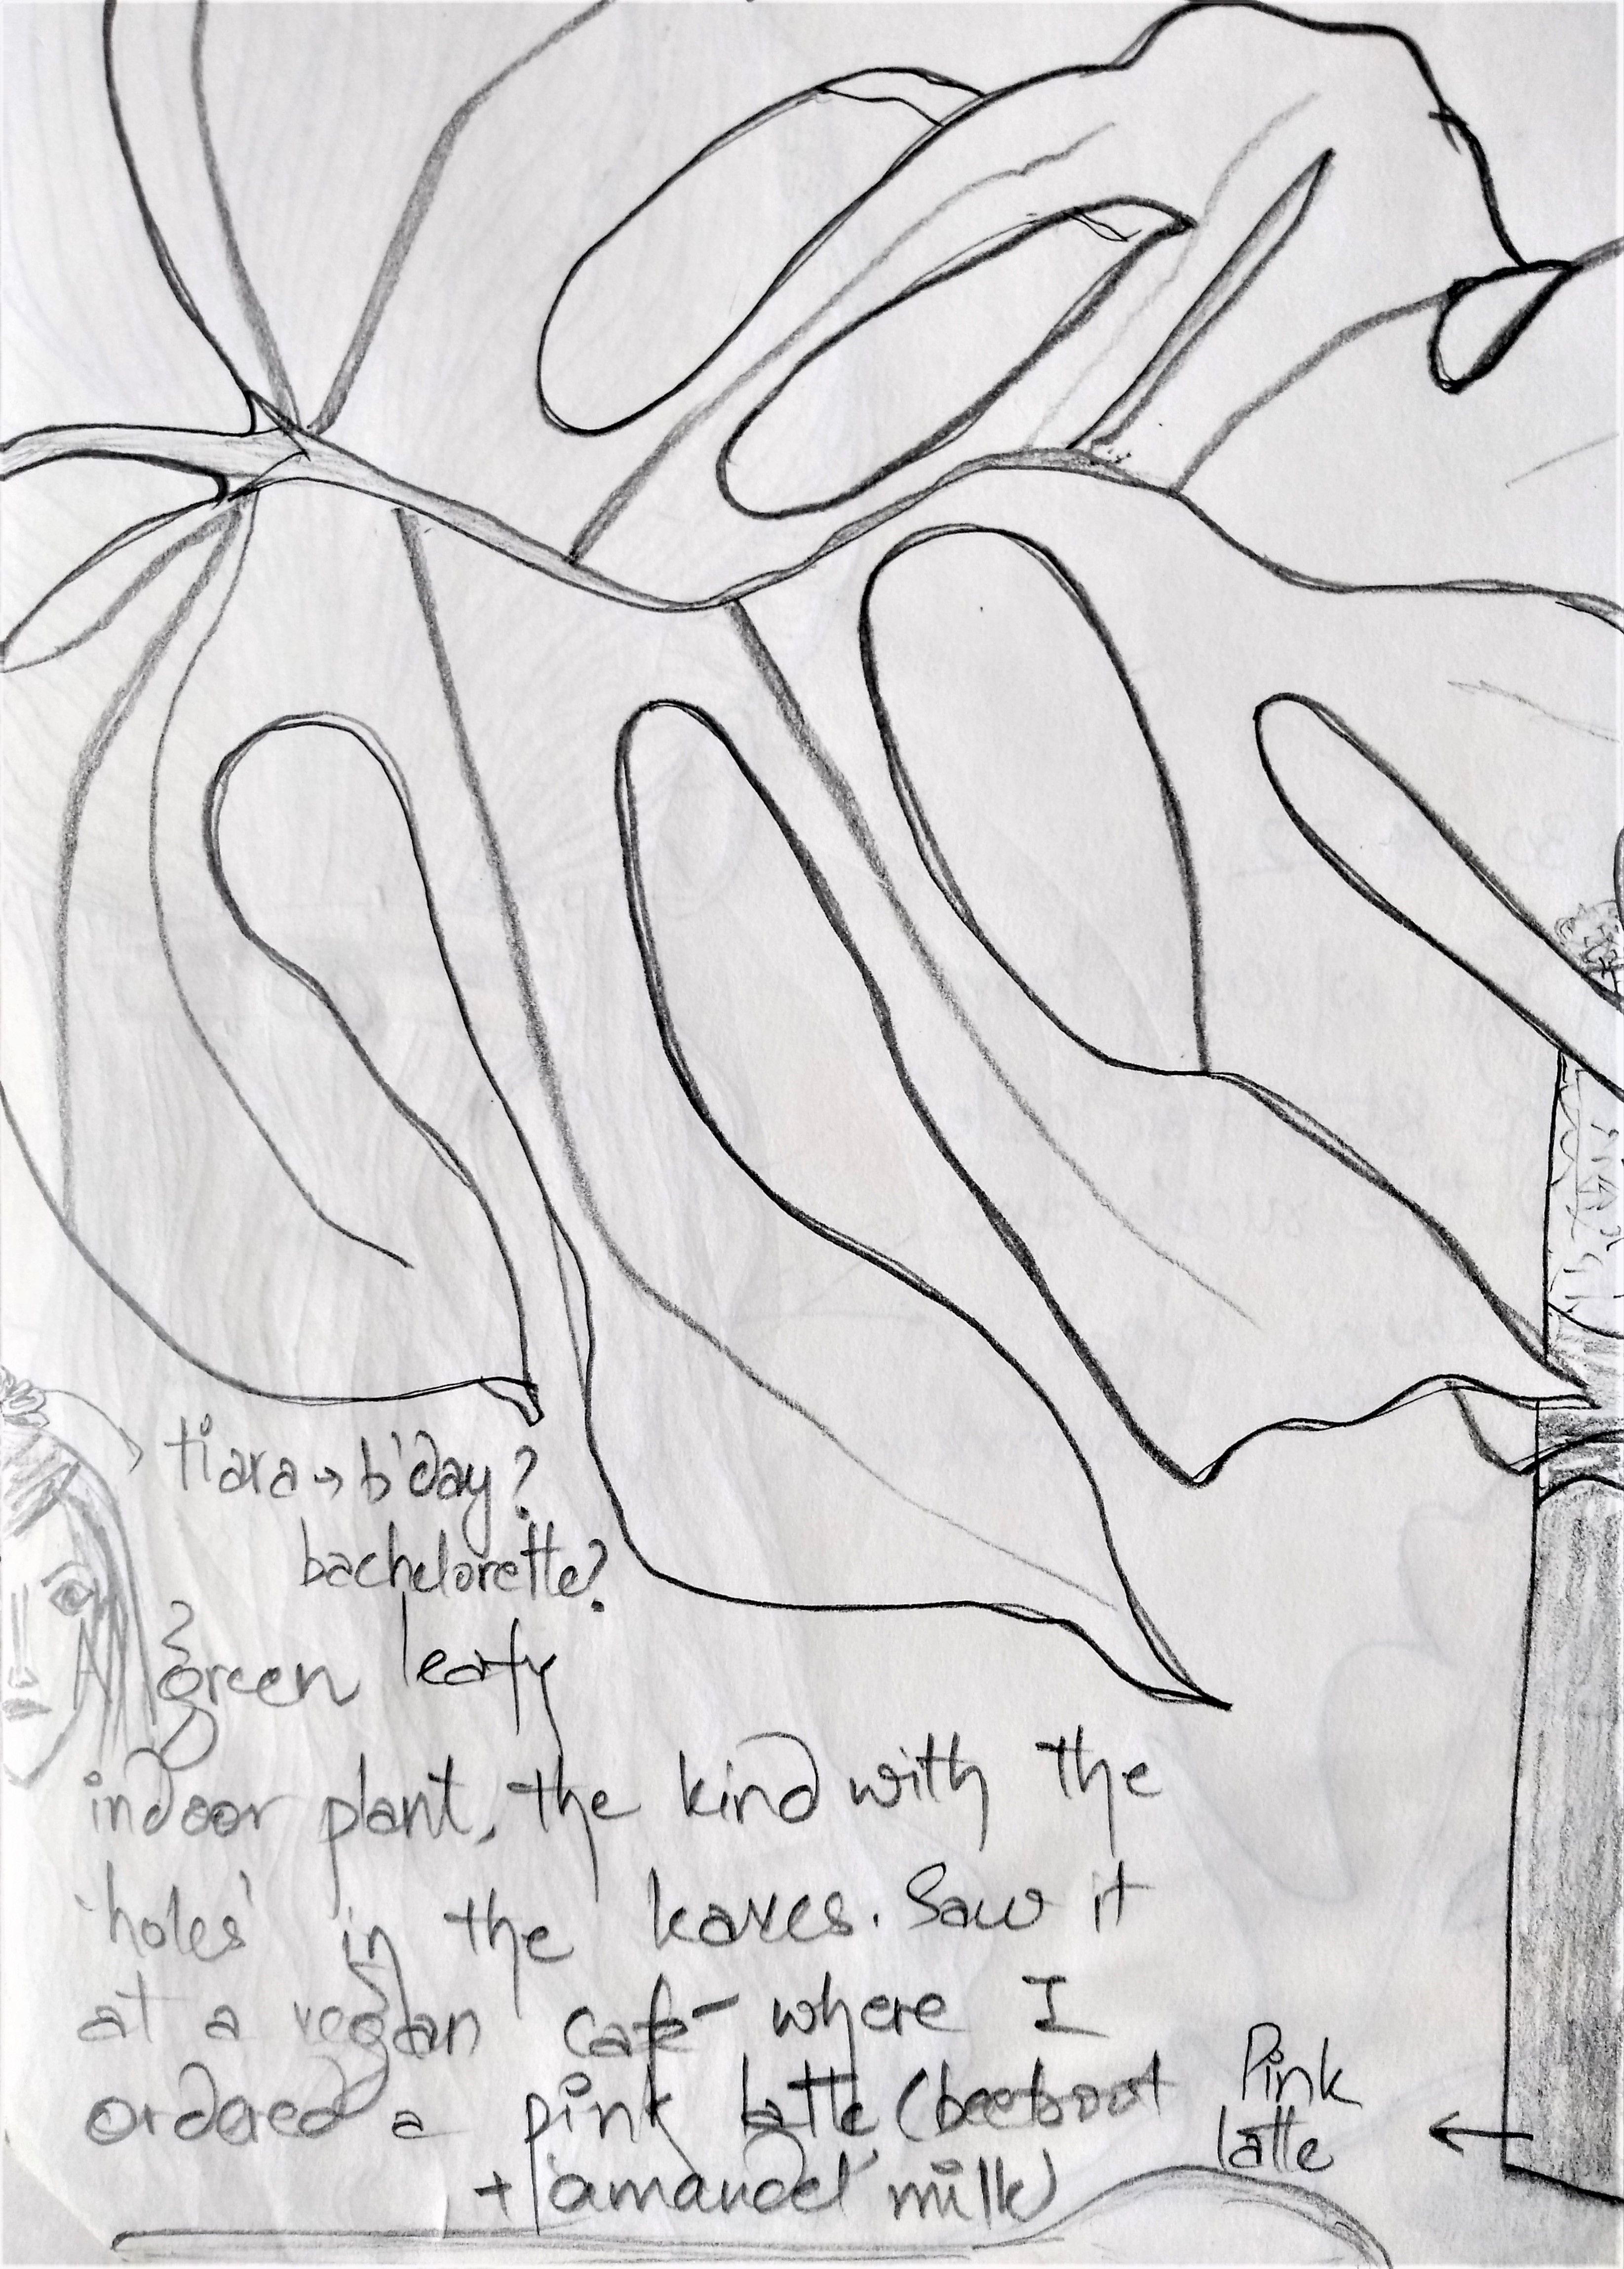 tiara → b'day?
bachelorette?
green leafy
indoor plant, the kind with the
'holes' in the leaves. Saw it
at a vegan cafe - where I
ordered a pink latte (beetroot
+ 'amandel' milk)
Pink
latte